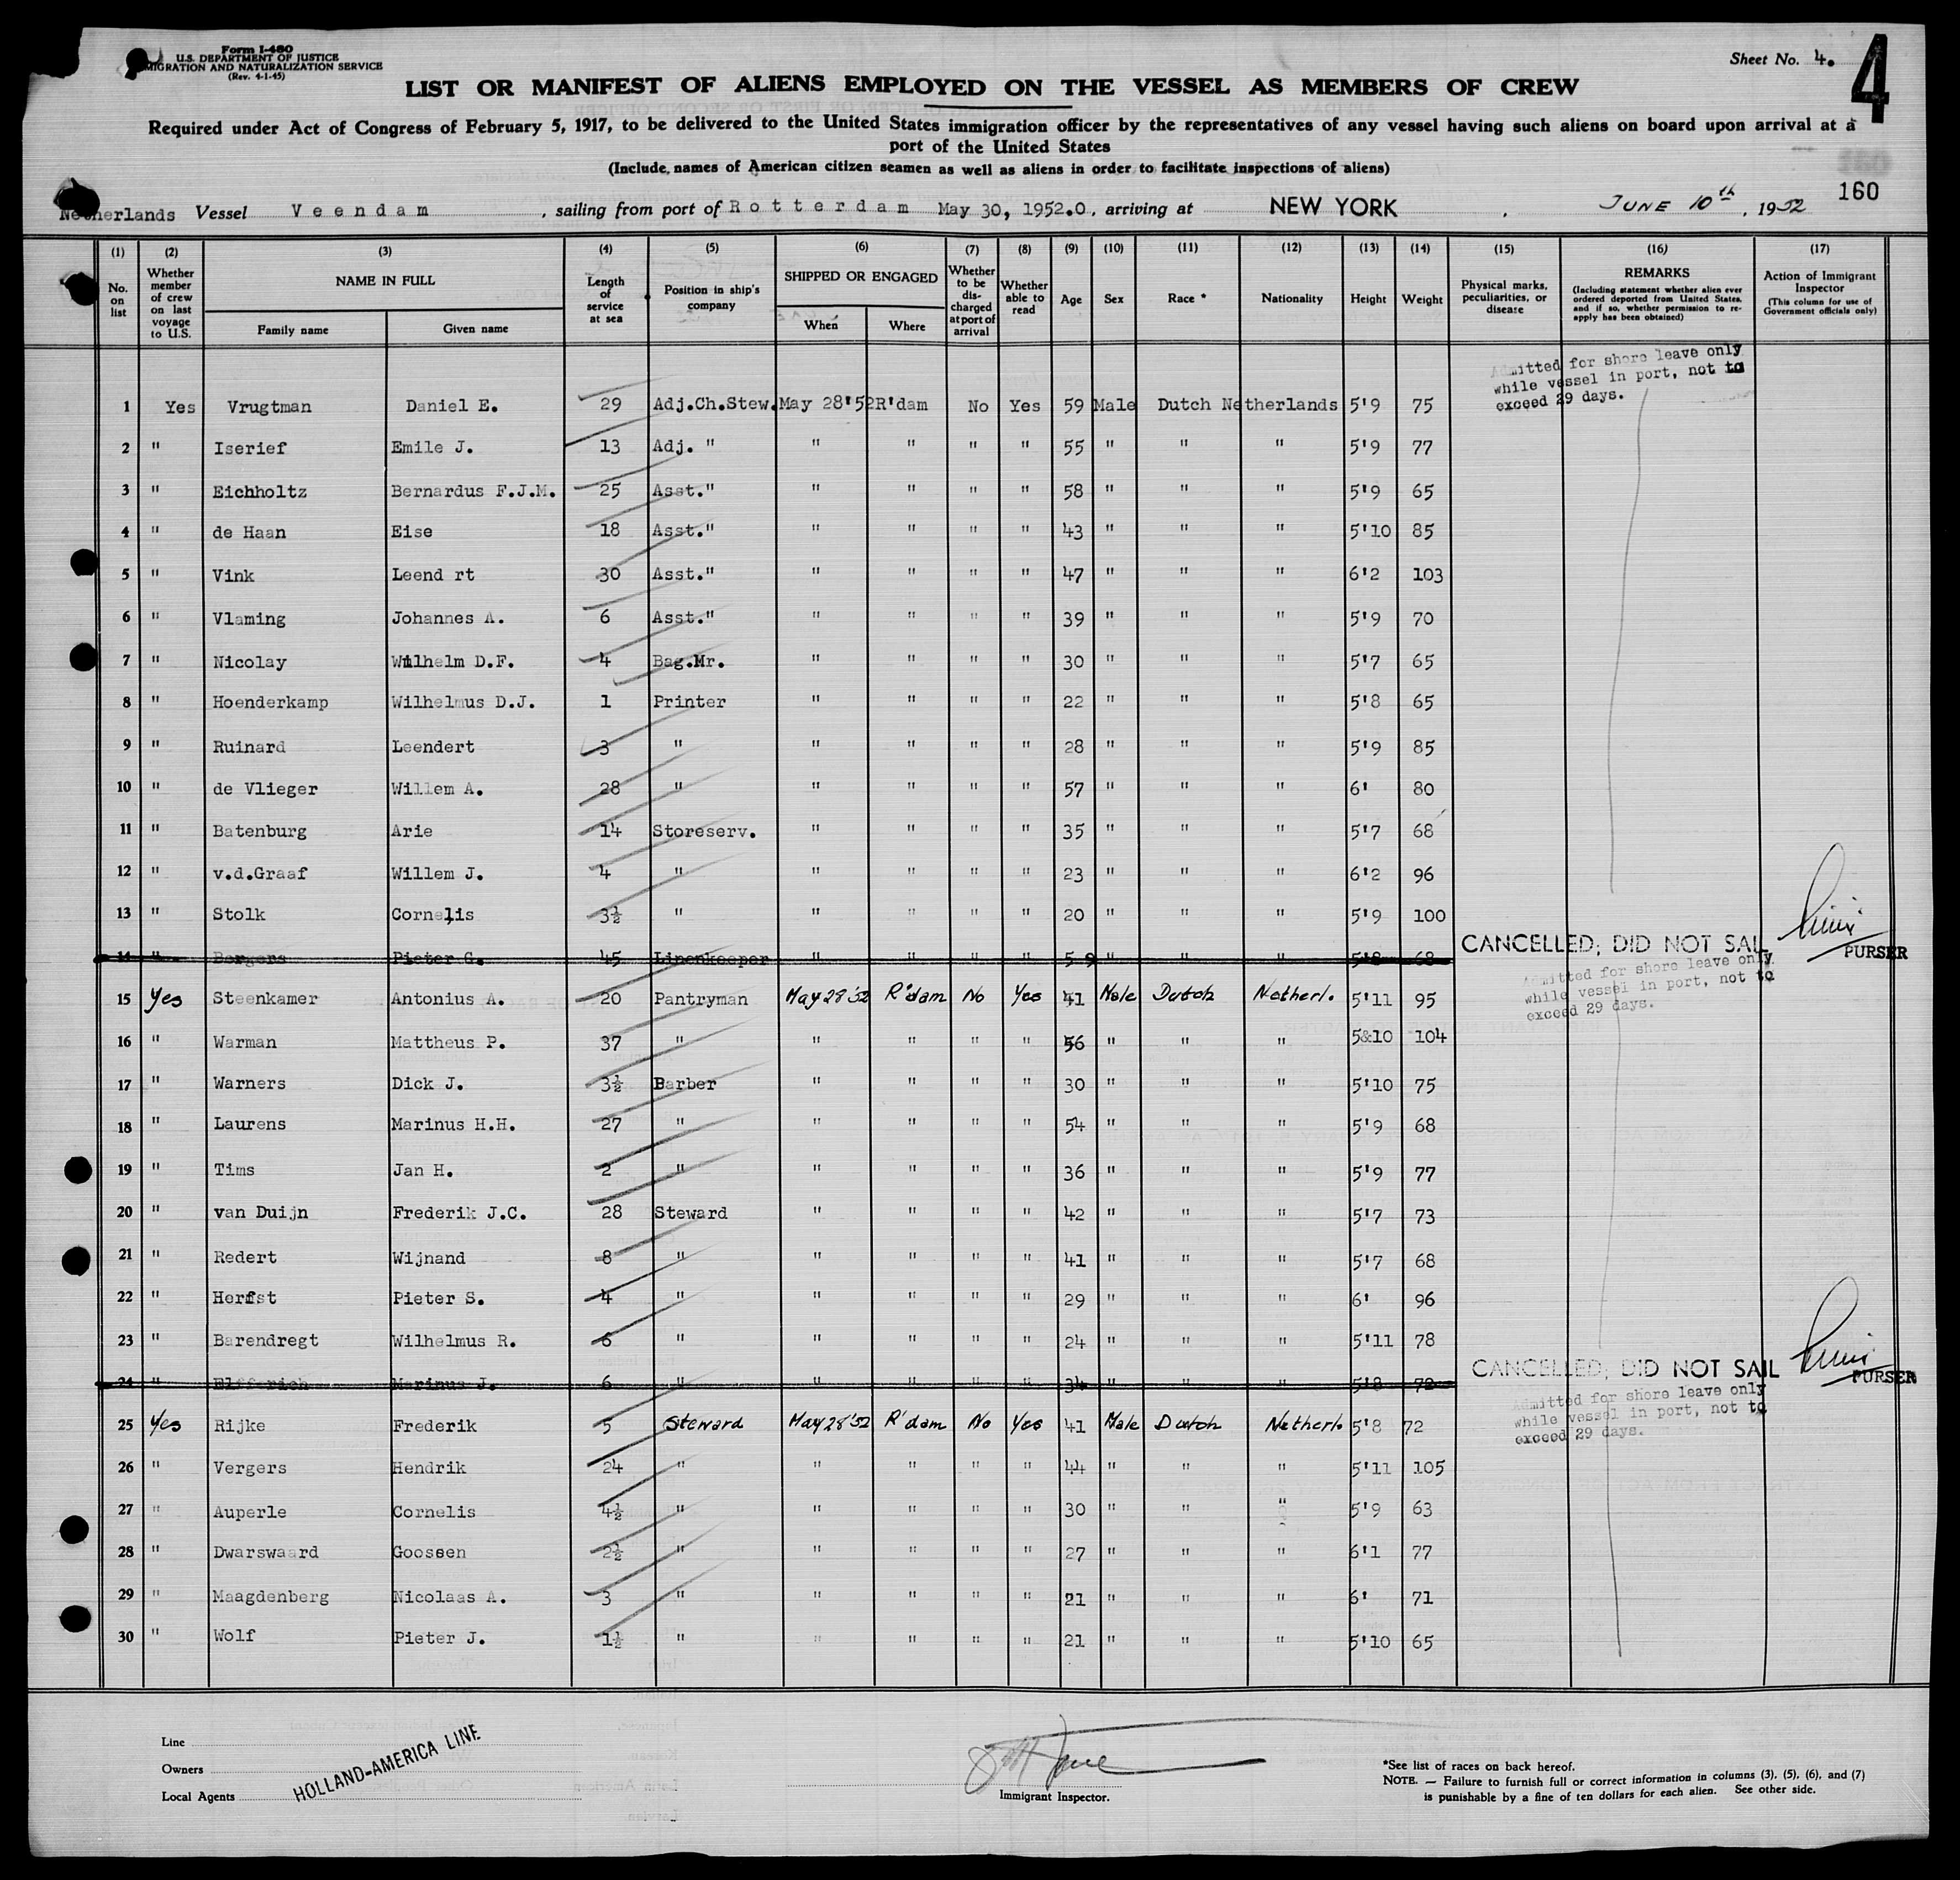 Form I-480
U.S. DEPARTMENT OF JUSTICE
IMMIGRATION AND NATURALIZATION SERVICE
(Rev. 4-1-45)
Sheet No. 4.
4
LIST OR MANIFEST OF ALIENS EMPLOYED ON THE VESSEL AS MEMBERS OF CREW
Required under Act of Congress of February 5, 1917, to be delivered to the United States immigration officer by the representatives of any vessel having such aliens on board upon arrival at a
port of the United States
(Include names of American citizen seamen as well as aliens in order to facilitate inspections of aliens)
160
Netherlands Vessel Veendam, sailing from port of Rotterdam May 30, 1952.0, arriving at NEW YORK, JUNE 10th, 1952
(1) (2) (3) (4) (5) (6) (7) (8) (9) (10) (11) (12) (13) (14) (15) (16) (17)
No. on list
Whether member of crew on last voyage to U.S.
NAME IN FULL
Family name
Given name
Length of service at sea
Position in ship's company
SHIPPED OR ENGAGED
When
Where
Whether to be discharged at port of arrival
Whether able to read
Age
Sex
Race *
Nationality
Height
Weight
Physical marks, peculiarities, or disease
REMARKS
(Including statement whether alien ever ordered deported from United States, and if so, whether permission to re-apply has been obtained)
Action of Immigrant Inspector
(This column for use of Government officials only)
Admitted for shore leave only
while vessel in port, not to
exceed 29 days.
1 Yes Vrugtman Daniel E. 29 Adj.Ch.Stew. May 28'52 R'dam No Yes 59 Male Dutch Netherlands 5'9 75
2 " Iserief Emile J. 13 Adj. " " " " " 55 " " " 5'9 77
3 " Eichholtz Bernardus F.J.M. 25 Asst." " " " " 58 " " " 5'9 65
4 " de Haan Eise 18 Asst." " " " " 43 " " " 5'10 85
5 " Vink Leend rt 30 Asst." " " " " 47 " " " 6'2 103
6 " Vlaming Johannes A. 6 Asst." " " " " 39 " " " 5'9 70
7 " Nicolay Wilhelm D.F. 4 Bag.Mr. " " " " 30 " " " 5'7 65
8 " Hoenderkamp Wilhelmus D.J. 1 Printer " " " " 22 " " " 5'8 65
9 " Ruinard Leendert 3 " " " " " 28 " " " 5'9 85
10 " de Vlieger Willem A. 28 " " " " " 57 " " " 6' 80
11 " Batenburg Arie 14 Storeserv. " " " " 35 " " " 5'7 68
12 " v.d.Graaf Willem J. 4 " " " " " 23 " " " 6'2 96
13 " Stolk Cornelis 3½ " " " " " 20 " " " 5'9 100
CANCELLED; DID NOT SAIL
PURSER
14 " Bergers Pieter G. 45 Linenkeeper " " " " 59 " " " 5'8 68
Admitted for shore leave only
while vessel in port, not to
exceed 29 days.
15 Yes Steenkamer Antonius A. 20 Pantryman May 28'52 R'dam No Yes 41 Male Dutch Netherl. 5'11 95
16 " Warman Mattheus P. 37 " " " " " 56 " " " 5&10 104
17 " Warners Dick J. 3½ Barber " " " " 30 " " " 5'10 75
18 " Laurens Marinus H.H. 27 " " " " " 54 " " " 5'9 68
19 " Tims Jan H. 2 " " " " " 36 " " " 5'9 77
20 " van Duijn Frederik J.C. 28 Steward " " " " 42 " " " 5'7 73
21 " Redert Wijnand 8 " " " " " 41 " " " 5'7 68
22 " Herfst Pieter S. 4 " " " " " 29 " " " 6' 96
23 " Barendregt Wilhelmus R. 6 " " " " " 24 " " " 5'11 78
CANCELLED; DID NOT SAIL
PURSER
24 " Elfferich Marinus J. 6 " " " " " 34 " " " 5'8 72
Admitted for shore leave only
while vessel in port, not to
exceed 29 days.
25 Yes Rijke Frederik 5 Steward May 28'52 R'dam No Yes 41 Male Dutch Netherl. 5'8 72
26 " Vergers Hendrik 24 " " " " " 44 " " " 5'11 105
27 " Auperle Cornelis 4½ " " " " " 30 " " " 5'9 63
28 " Dwarswaard Goossen 2½ " " " " " 27 " " " 6'1 77
29 " Maagdenberg Nicolaas A. 3 " " " " " 21 " " " 6' 71
30 " Wolf Pieter J. 1½ " " " " " 21 " " " 5'10 65
Line
Owners
Local Agents
HOLLAND-AMERICA LINE
Immigrant Inspector.
*See list of races on back hereof.
NOTE. — Failure to furnish full or correct information in columns (3), (5), (6), and (7)
is punishable by a fine of ten dollars for each alien. See other side.